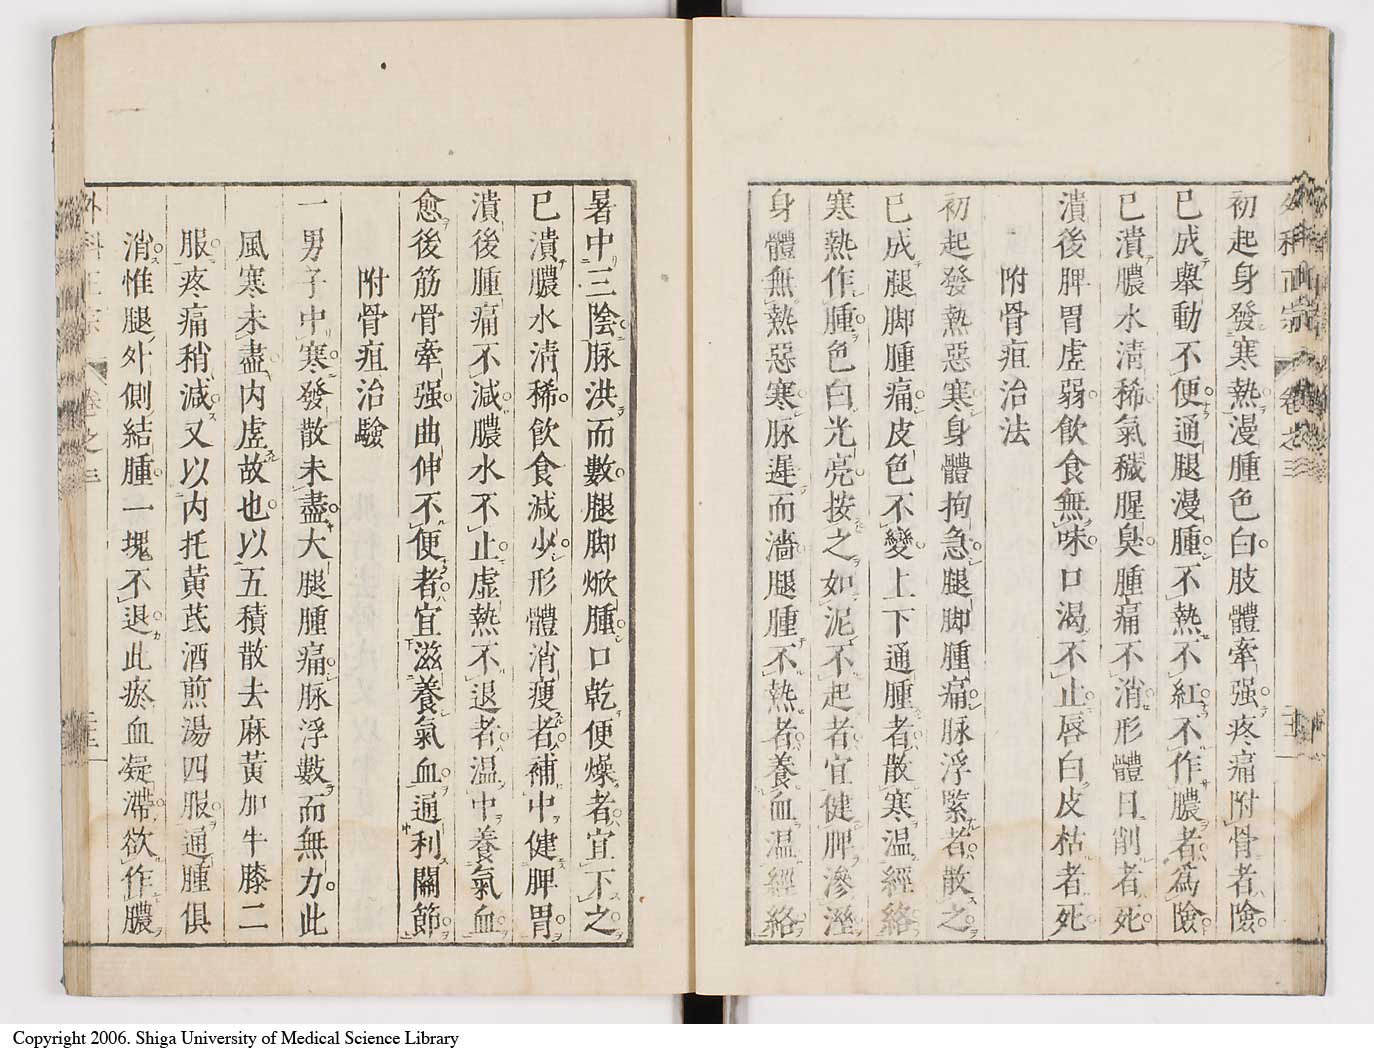 初起身發寒熱漫腫色白肢體牽强疼痛附骨者險
已成擧動不便通腿漫腫不熱不紅不作膿者爲險
已潰膿水淸稀氣穢腥臭腫痛不消形體日削者死
潰後脾胃虛弱飮食無味口渴不止唇白皮枯者死
附骨疽治法
初起發熱惡寒身體拘急腿脚腫痛脉浮緊者散之
已成腿脚腫痛皮色不變上下通腫者散寒温經絡
寒熱作腫色白光亮按之如泥不起者宜健脾滲溼
身體無熱惡寒脉遲而濇腿腫不熱者養血温經絡
暑中三陰脉洪而數腿脚焮腫口乾便燥者宜下之
已潰膿水淸稀飮食減少形體消瘦者補中健脾胃
潰後腫痛不減膿水不止虛熱不退者温中養氣血
愈後筋骨牽强曲伸不便者宜滋養氣血通利關節
附骨疽治驗
一男子中寒發散未盡大腿腫痛脉浮數而無力此
風寒未盡内虛故也以五積散去麻黃加牛膝二
服疼痛稍減又以内托黃芪酒煎湯四服通腫俱
消惟腿外側結腫一塊不退此瘀血凝滯欲作膿
外科正宗 卷之三
Copyright 2006. Shiga University of Medical Science Library